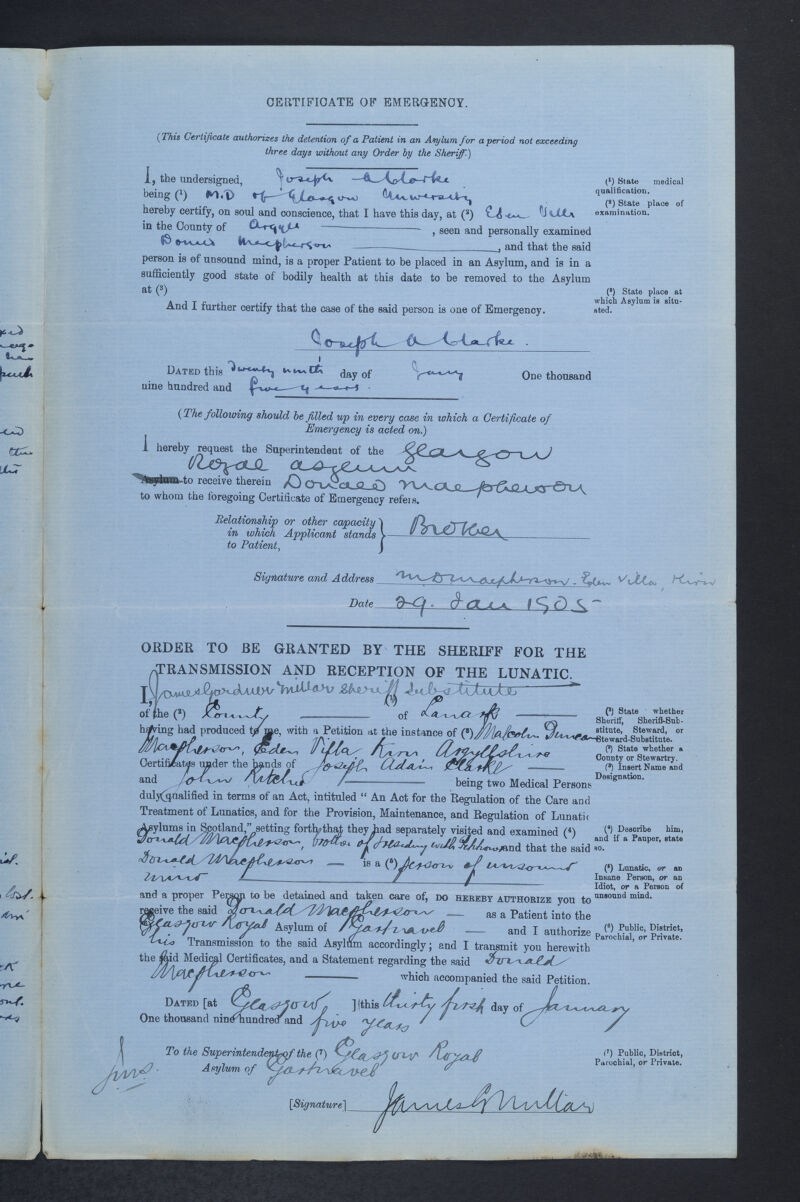 CERTIFICATE OF EMERGENCY.
(This Certificate authorizes the detention of a Patient in an Asylum for a period not exceeding
three days without any Order by the Sheriff.)
I, the undersigned, Joseph A Clarke
being (¹) M.D of Glasgow University
hereby certify, on soul and conscience, that I have this day, at (²) Eden Villa
in the County of Argyll , seen and personally examined
Donald Macpherson , and that the said
person is of unsound mind, is a proper Patient to be placed in an Asylum, and is in a
sufficiently good state of bodily health at this date to be removed to the Asylum
at (³)
And I further certify that the case of the said person is one of Emergency.
(¹) State medical
qualification.
(²) State place of
examination.
(³) State place at
which Asylum is situ-
ated.
Joseph A Clarke.
DATED this Twenty ninth day of Jany One thousand
nine hundred and five years.
(The following should be filled up in every case in which a Certificate of
Emergency is acted on.)
I hereby request the Superintendent of the Glasgow
Royal Asylum
Asylum to receive therein Donald Macpherson
to whom the foregoing Certificate of Emergency refers.
Relationship or other capacity
in which Applicant stands
to Patient,
Brother
Signature and Address M D Macpherson. Eden Villa, Kirn
Date 29. Jan 1905
ORDER TO BE GRANTED BY THE SHERIFF FOR THE
TRANSMISSION AND RECEPTION OF THE LUNATIC.
I, James Gardner Millar Sheriff Substitute (¹)
of the (²) County of Lanark
having had produced to me, with a Petition at the instance of (³) Malcolm Duncan
Macpherson, Eden Villa Kirn Argyllshire
Certificates under the hands of Joseph Adam Clarke
and John Ritchie being two Medical Persons
duly qualified in terms of an Act, intituled " An Act for the Regulation of the Care and
Treatment of Lunatics, and for the Provision, Maintenance, and Regulation of Lunatic
Asylums in Scotland," setting forth that they had separately visited and examined (⁴)
Donald Macpherson, brother of & residing with Petitioner and that the said
Donald Macpherson is a (⁵) person of unsound
mind
and a proper Person to be detained and taken care of, DO HEREBY AUTHORIZE you to
receive the said Donald Macpherson as a Patient into the
Glasgow Royal Asylum of Gartnavel and I authorize
his Transmission to the said Asylum accordingly; and I transmit you herewith
the said Medical Certificates, and a Statement regarding the said Donald
Macpherson which accompanied the said Petition.
(¹) State whether
Sheriff, Sheriff-Sub-
stitute, Steward, or
Steward-Substitute.
(²) State whether a
County or Stewartry.
(³) Insert Name and
Designation.
(⁴) Describe him,
and if a Pauper, state
so.
(⁵) Lunatic, or an
Insane Person, or an
Idiot, or a Person of
unsound mind.
(⁶) Public, District,
Parochial, or Private.
DATED [at Glasgow ] this thirty first day of January
One thousand nine hundred and five years
To the Superintendent of the (⁷) Glasgow Royal
Asylum of Gartnavel
(⁷) Public, District,
Parochial, or Private.
[Signature] James G Millar